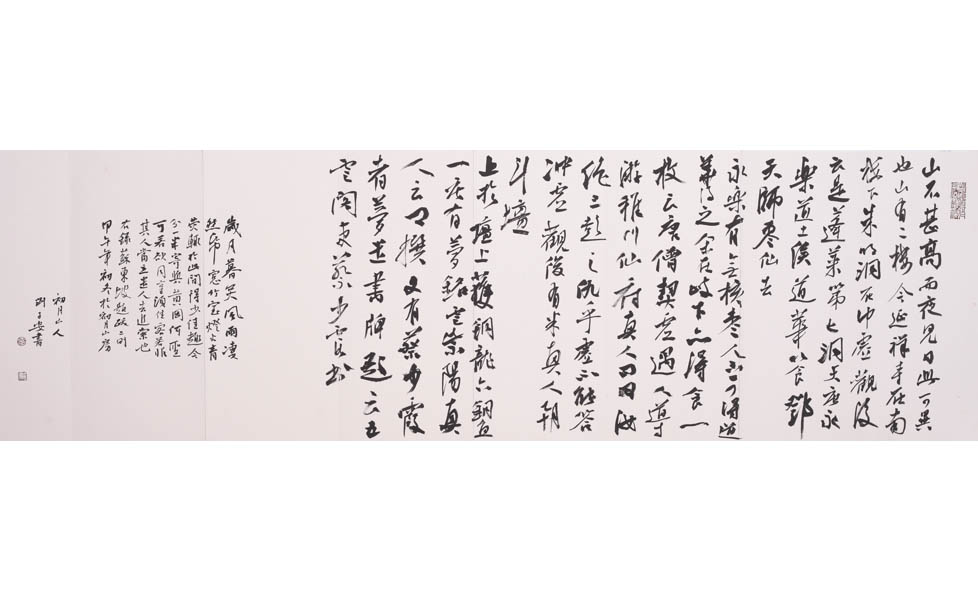 山不甚高而夜見日此可異
也山有二樓今延祥寺在南
樓下朱明洞在冲虛觀後
云是蓬萊第七洞天唐永
樂道士侯道華以食鄧
天師棗仙去
永樂有無核棗人不可得道
華得之余在岐下亦得食一
枚云唐僧契虛遇人導
游稚川仙府真人問曰汝
絕三彭之仇乎虛不能答
冲虛觀後有米真人朝
斗壇
上於壇上獲銅龍六銅魚
一唐有夢銘云紫陽真
人云卿撰又有蔡少霞
者夢遣書牌題云五
雲閣吏蔡少霞書
歲月暮矣風雨凄
然帋窓竹室燈火青
熒輒於此間得少佳趣今
分一半寄與黃岡何聖
可若欲同享須佳客若非
其人當立遣人去追索也
右錄蘇東坡題跋二則
甲午年初冬於初月山房
初月山人
子安書